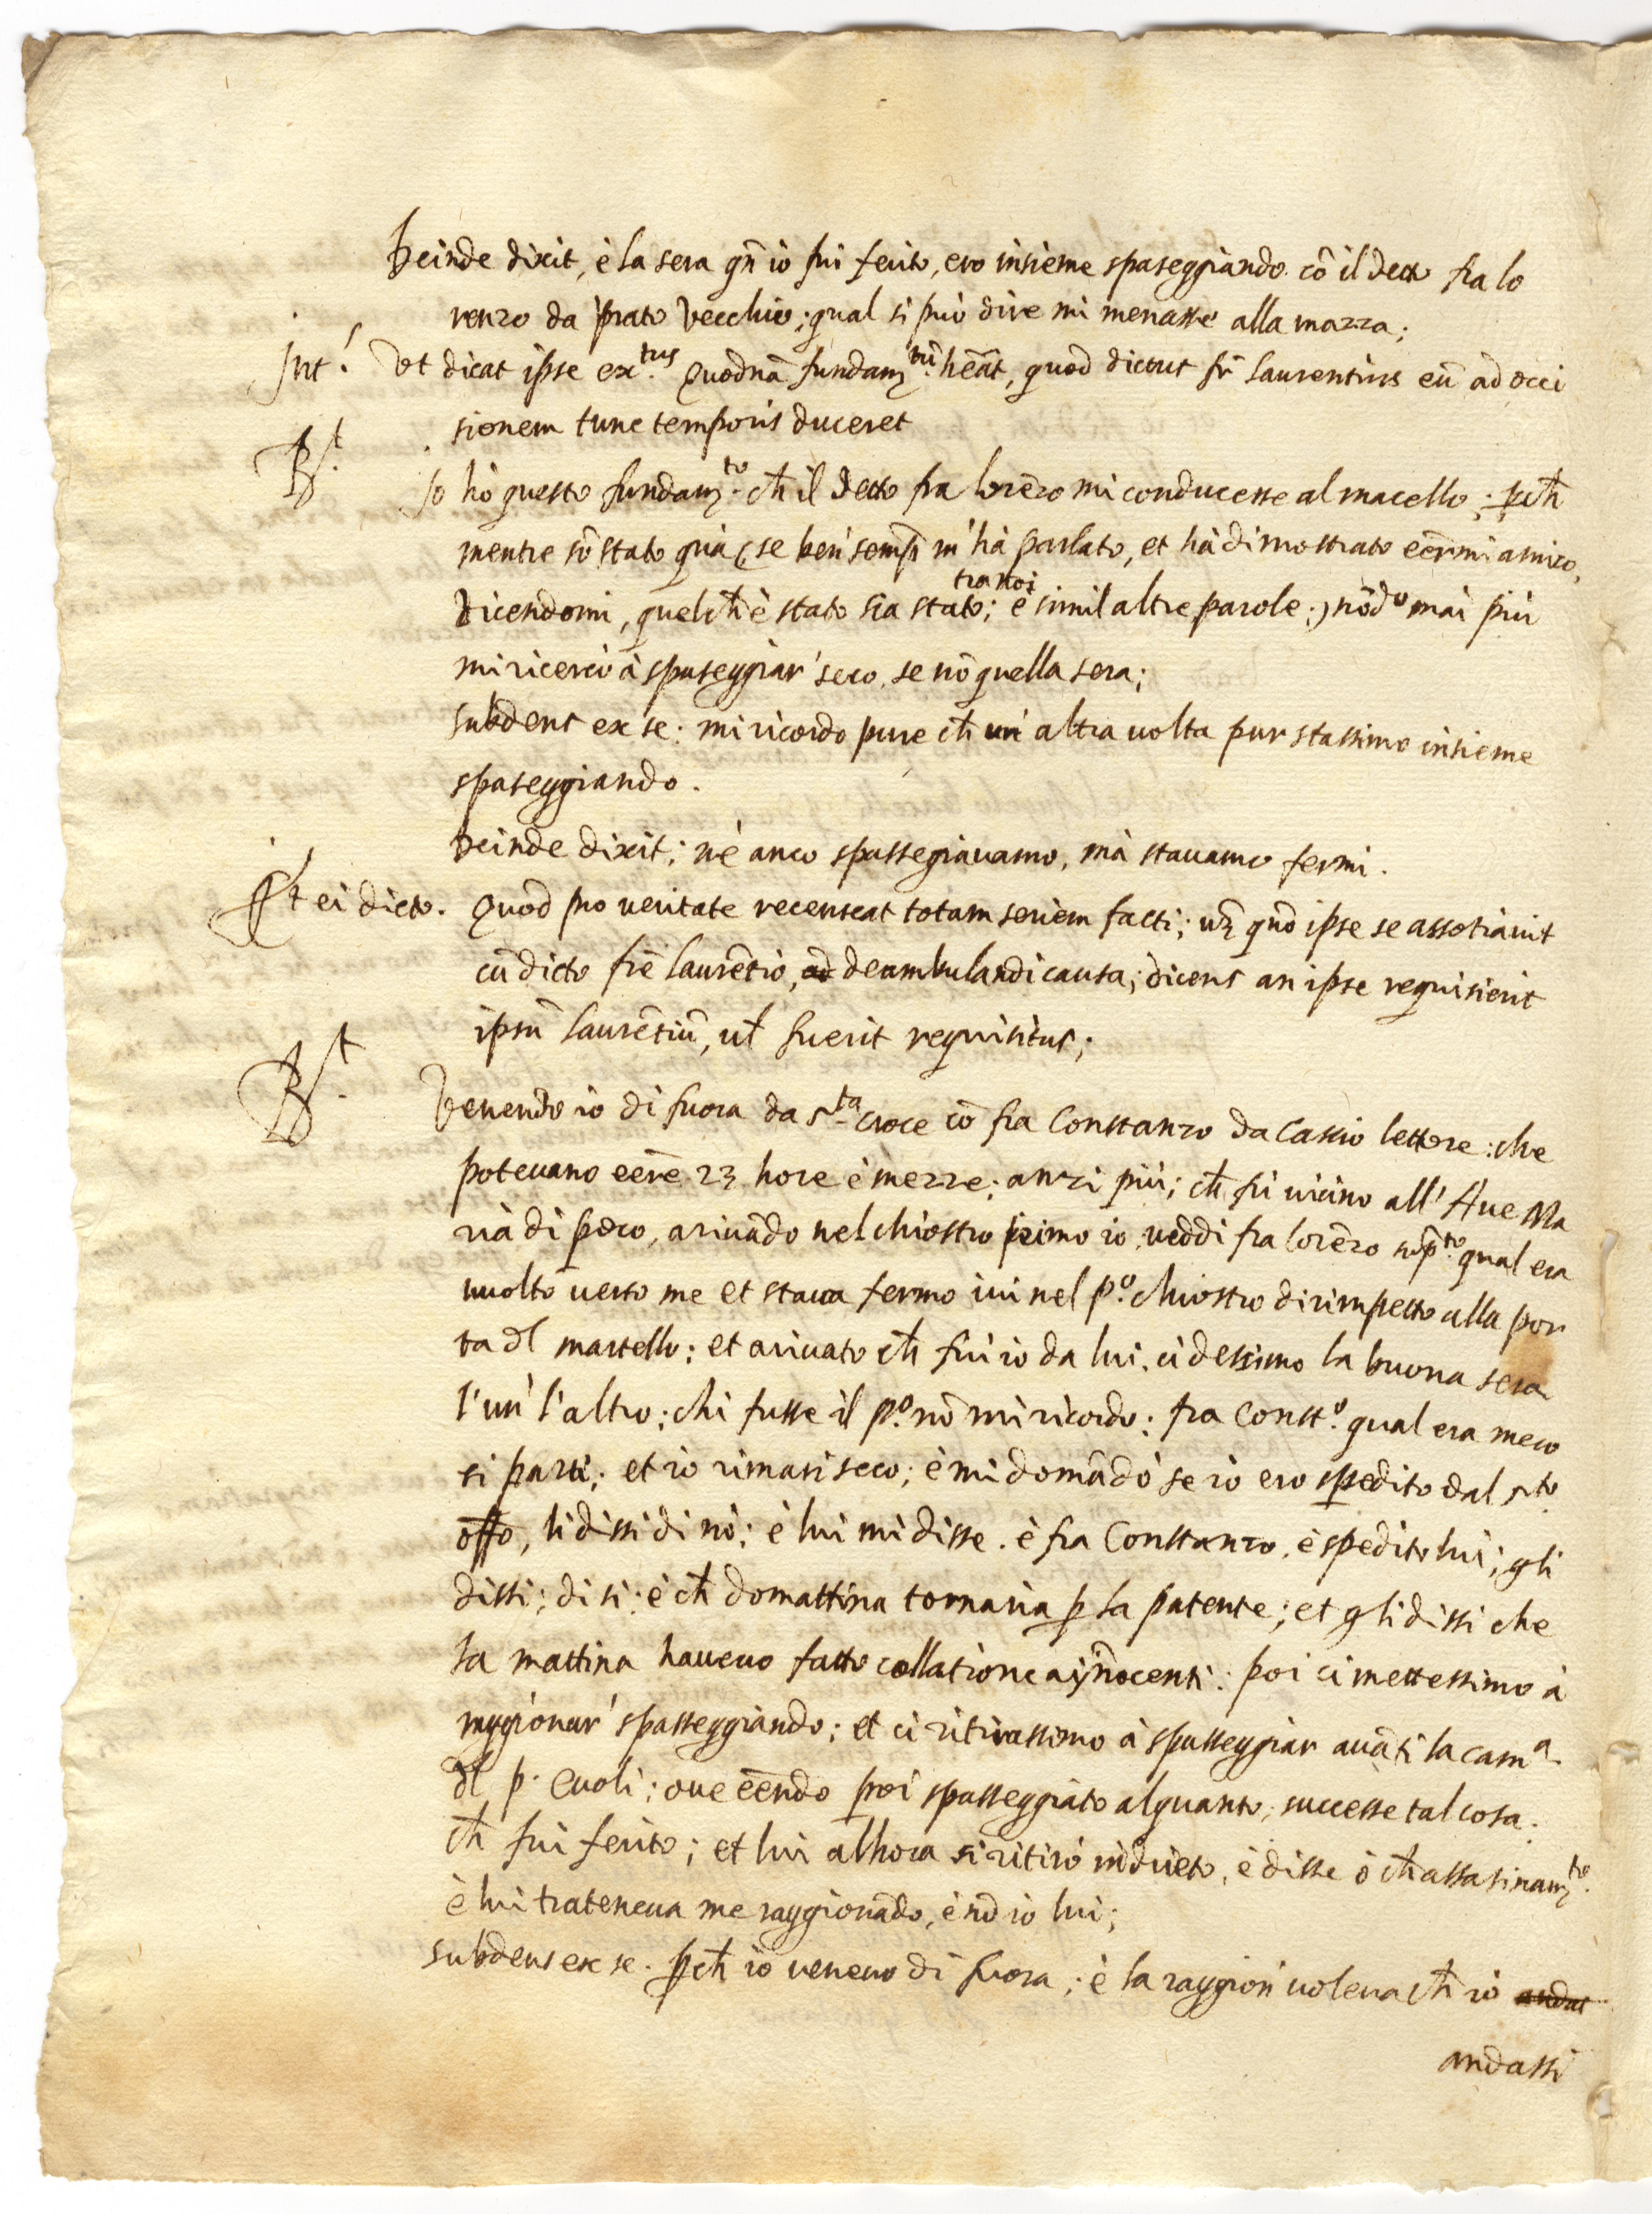 Deinde dixit, è la sera qñ io fui ferito, ero insieme spaseggiando cõ il detto fra lo
renzo da Prato Vecchio; qual si può dire mi menasse alla mazza;
Int.s Vt dicat ipse ex.tus quodnã fundam.tũ hēat, quod dictus fr̃ Laurentius eũ ad occi
sionem tunc temporis duceret
R.t Io hò questo fundam.to ch̃ il detto fra lorēzo mi conducesse al macello; p̱ch̃
mentre sõ stato quà (se ben' semp̃ m'hà parlato, et hà dimostrato eẽrmi amico,
dicendomi, quel ch̃ è stato sia stato; tra noi è simil altre parole;) nõd.o mai più
mi ricercò à spaseggiar' seco, se nõ quella sera;
subdens ex se: mi ricordo pure ch̃ un' altra uolta pur stassimo insieme
spaseggiando.
Deinde dixit; nè anco spassegiauamo, mà stauamo fermi.
Et ei dicto. Quod pro ueritate recenseat totam seriem facti; uz̃ quõ ipse se assotiauit
cũ dicto frẽ Laurẽtio, ad deambulandi causa; dicens an ipse requisierit
ipsũ Laurẽtiũ, ul̃ fuerit requisitus;
R.t Venendo io di fuora da S.ta Croce cõ fra Constanzo da Cassio lettore: che
poteuano eẽre 23 hore è mezze; anzi più; ch̃ fù uicino all' Aue Ma
ria di poco, ariuãdo nel chiostro primo io, ueddi fra lorẽzo sop̃.to qual era
uuolto uerso me et staua fermo iui nel p.o chiostro dirimpetto alla por
ta dl̃ martello; et ariuato ch̃ fui io da lui, ci dessimo la buona sera
l'un' l'altro; chi fusse il p.o nõ mi ricordo; fra Const.o qual era meco
si partì; et io rimasi seco; è mi domãdò se io ero spedito dal S.to
offo, li dissi di nò; è lui mi disse. è fra Constanzo, è spedito lui; gli
dissi; di si; è ch̃ domattina tornaria p̱ la patente; et gli dissi che
la mattina haueuo fatto collatione a jñocenti: poi ci mettessimo à
raggionar' spasseggiando; et ci ritirassimo à spasseggiar auãti la cam.a
dl̃ p. Cuoli; oue eẽndo poi spasseggiato alquanto, successe tal cosa.
ch̃ fui ferito; et lui alhora si ritirò indrieto, è disse ò ch̃ assasinam.to
è lui trateneua me raggionãdo, è nõ io lui;
subdens ex se. p̱ch̃ io ueneuo di fuora; è la raggion' uoleua ch̃ io andas
andassi